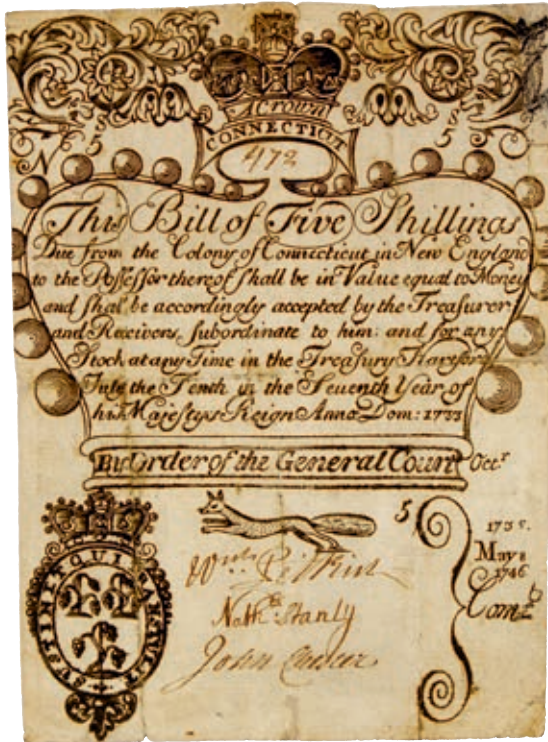 A Crown
CONNECTICUT
N 472
S 5
S 5
This Bill of Five Shillings
Due from the Colony of Connecticut in New England
to the Possessor thereof shall be in Value equal to Money
and shal be accordingly accepted by the Treasurer
and Receivers, Subordinate to him: and for any
Stock at any Time in the Treasury Hartford
July the Tenth in the Seventh Year of
his Majestys Reign Anno Dom: 1733
By Order of the General Court Octr
5
173
May 8
1746
Comtb
SUSTINET QUI TRANSTULIT
Wm Pitkin
Nathll Stanly
John